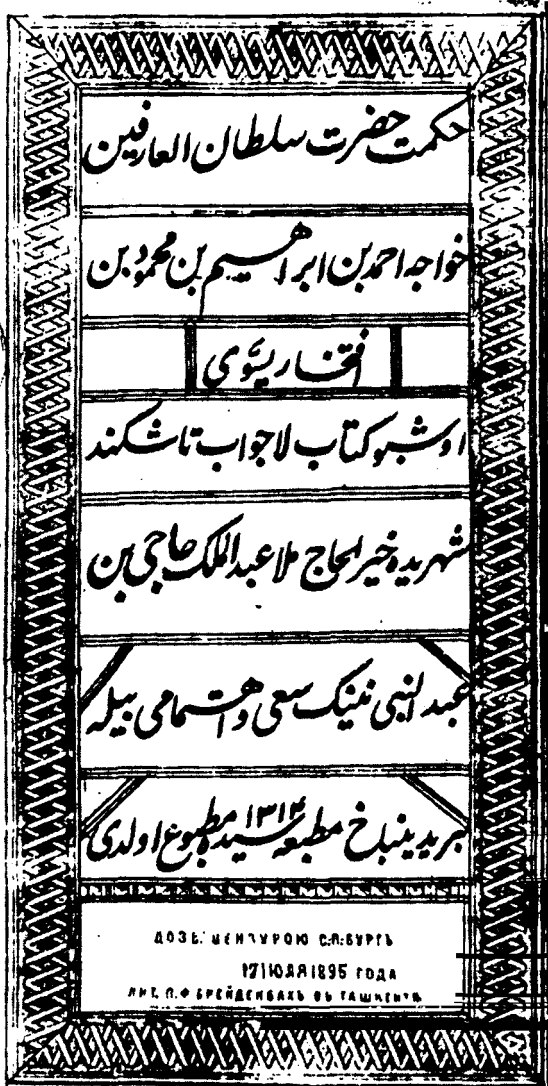 حکمت حضرت سلطان العارفین
خواجه احمد بن ابراهیم بن محمود بن
افتخار یسوی
اوشبو کتاب لاجواب تاشکند
شهریده خیر الحاج ملا عبد الملک حاجی بن
عبد النبی نینک سعی و اهتمامی بیله
بریدینباخ مطبعه سیده مطبوع اولدی ۱۳۱۴
ДОЗВ. ЦЕНЗУРОЮ С.П.БУРГЪ
17 ІЮЛЯ 1895 ГОДА
ЛИТ. О. Ф БРЕЙДЕНБАХЪ ВЪ ТАШКЕНТѢ